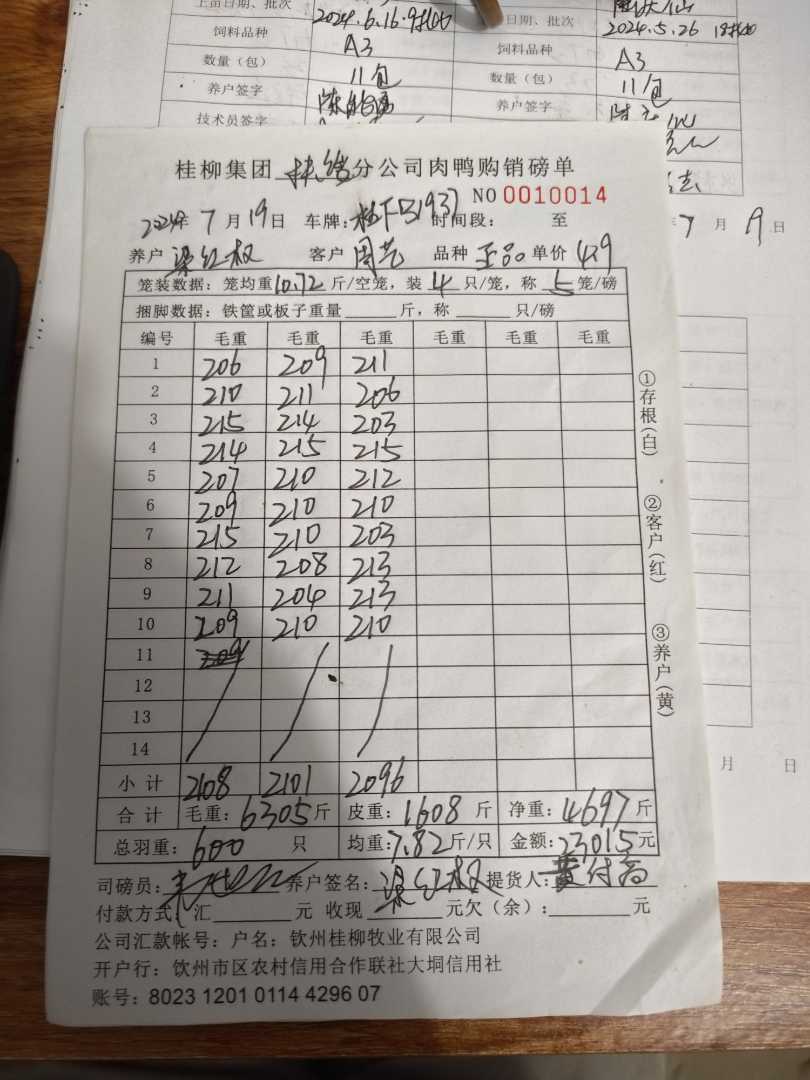 上苗日期、批次 2024.6.16.9批次 日期、批次 2024.5.26
饲料品种 A3 饲料品种 A3
数量（包） 11包 数量（包） 11包
养户签字 养户签字
技术员签字
桂柳集团 分公司肉鸭购销磅单
NO 0010014
2024年 7月19日 车牌: 时间段: 至
年 7 月 19 日
养户 梁红权 客户 周艺 品种 正品 单价 4.9
笼装数据: 笼均重10.72斤/空笼, 装 4 只/笼, 称 5 笼/磅
捆脚数据: 铁筐或板子重量____斤, 称____只/磅
编号 毛重 毛重 毛重 毛重 毛重 毛重
1 206 209 211
2 210 211 206
3 215 214 203
4 214 215 215
5 207 210 212
6 209 210 210
7 215 210 203
8 212 208 213
9 211 204 213
10 209 210 210
11 209
12
13
14
小计 2108 2101 2096
合计 毛重: 6305斤 皮重: 1608斤 净重: 4697斤
总羽重: 600 只 均重: 7.82斤/只 金额: 23015元
司磅员: 养户签名: 梁红权 提货人: 黄付高
付款方式: 汇____元 收现____元欠(余):____元
公司汇款帐号: 户名: 钦州桂柳牧业有限公司
开户行: 钦州市区农村信用合作联社大垌信用社
账号: 8023 1201 0114 4296 07
①存根(白)
②客户(红)
③养户(黄)
月 日